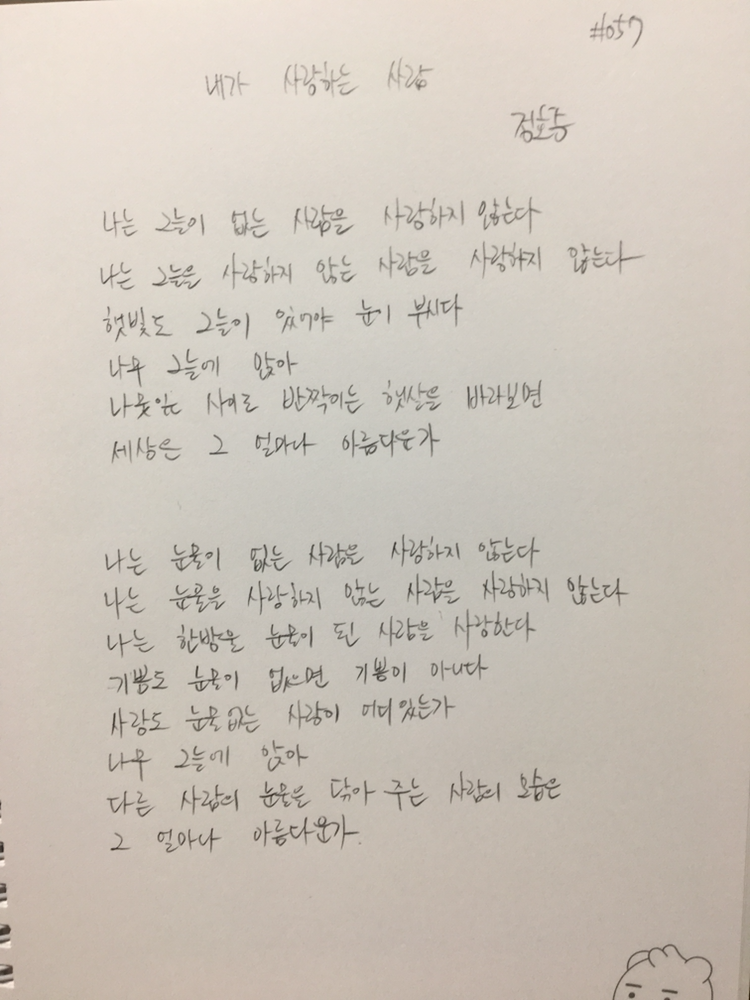 #057
내가 사랑하는 사람
정호승
나는 그늘이 없는 사람을 사랑하지 않는다
나는 그늘을 사랑하지 않는 사람을 사랑하지 않는다
햇빛도 그늘이 있어야 눈이 부시다
나무 그늘에 앉아
나뭇잎 사이로 반짝이는 햇살을 바라보면
세상은 그 얼마나 아름다운가
나는 눈물이 없는 사람을 사랑하지 않는다
나는 눈물을 사랑하지 않는 사람을 사랑하지 않는다
나는 한방울 눈물이 된 사람을 사랑한다
기쁨도 눈물이 없으면 기쁨이 아니다
사랑도 눈물없는 사랑이 어디있는가
나무 그늘에 앉아
다른 사람의 눈물을 닦아 주는 사람의 모습은
그 얼마나 아름다운가.